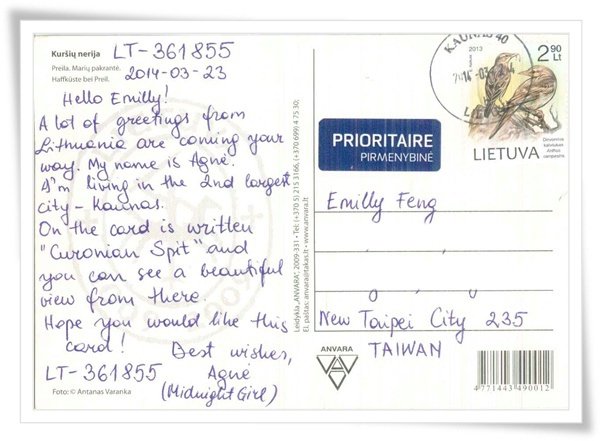 Kuršių nerija
LT-361855
Preila. Marių pakrantė.
Haffküste bei Preil.
2014-03-23
Hello Emilly!
A lot of greetings from
Lithuania are coming your
way. My name is Agnė.
I'm living in the 2nd largest
city - Kaunas.
On the card is written
"Curonian Spit" and
you can see a beautiful
view from there.
Hope you would like this
card!
Best wishes,
LT-361855
Agnė
(Midnight Girl)
Foto: © Antanas Varanka
Leidykla „ANVARA", 2009-331 • Tel: (+370 5) 215 3166, (+370 699) 4 75 30;
El. paštas: anvara@takas.lt • www.anvara.lt
KAUNAS 40
2013
2 90
Lt
Dirvoninis
kalviukas
Anthus
campestris
LIETUVA
PRIORITAIRE
PIRMENYBINĖ
Emilly Feng
New Taipei City 235
TAIWAN
ANVARA
4771443490012